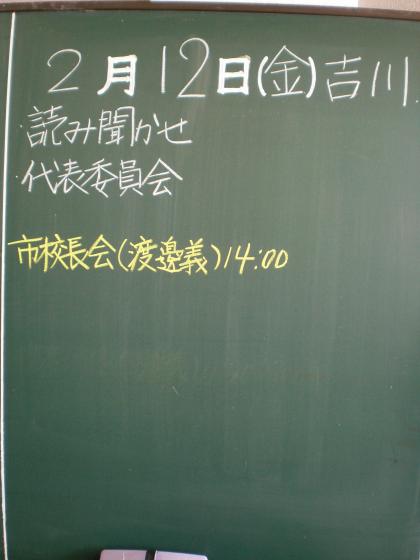 2月12日(金)吉川
・読み聞かせ
・代表委員会
市校長会(渡邊義)14:00